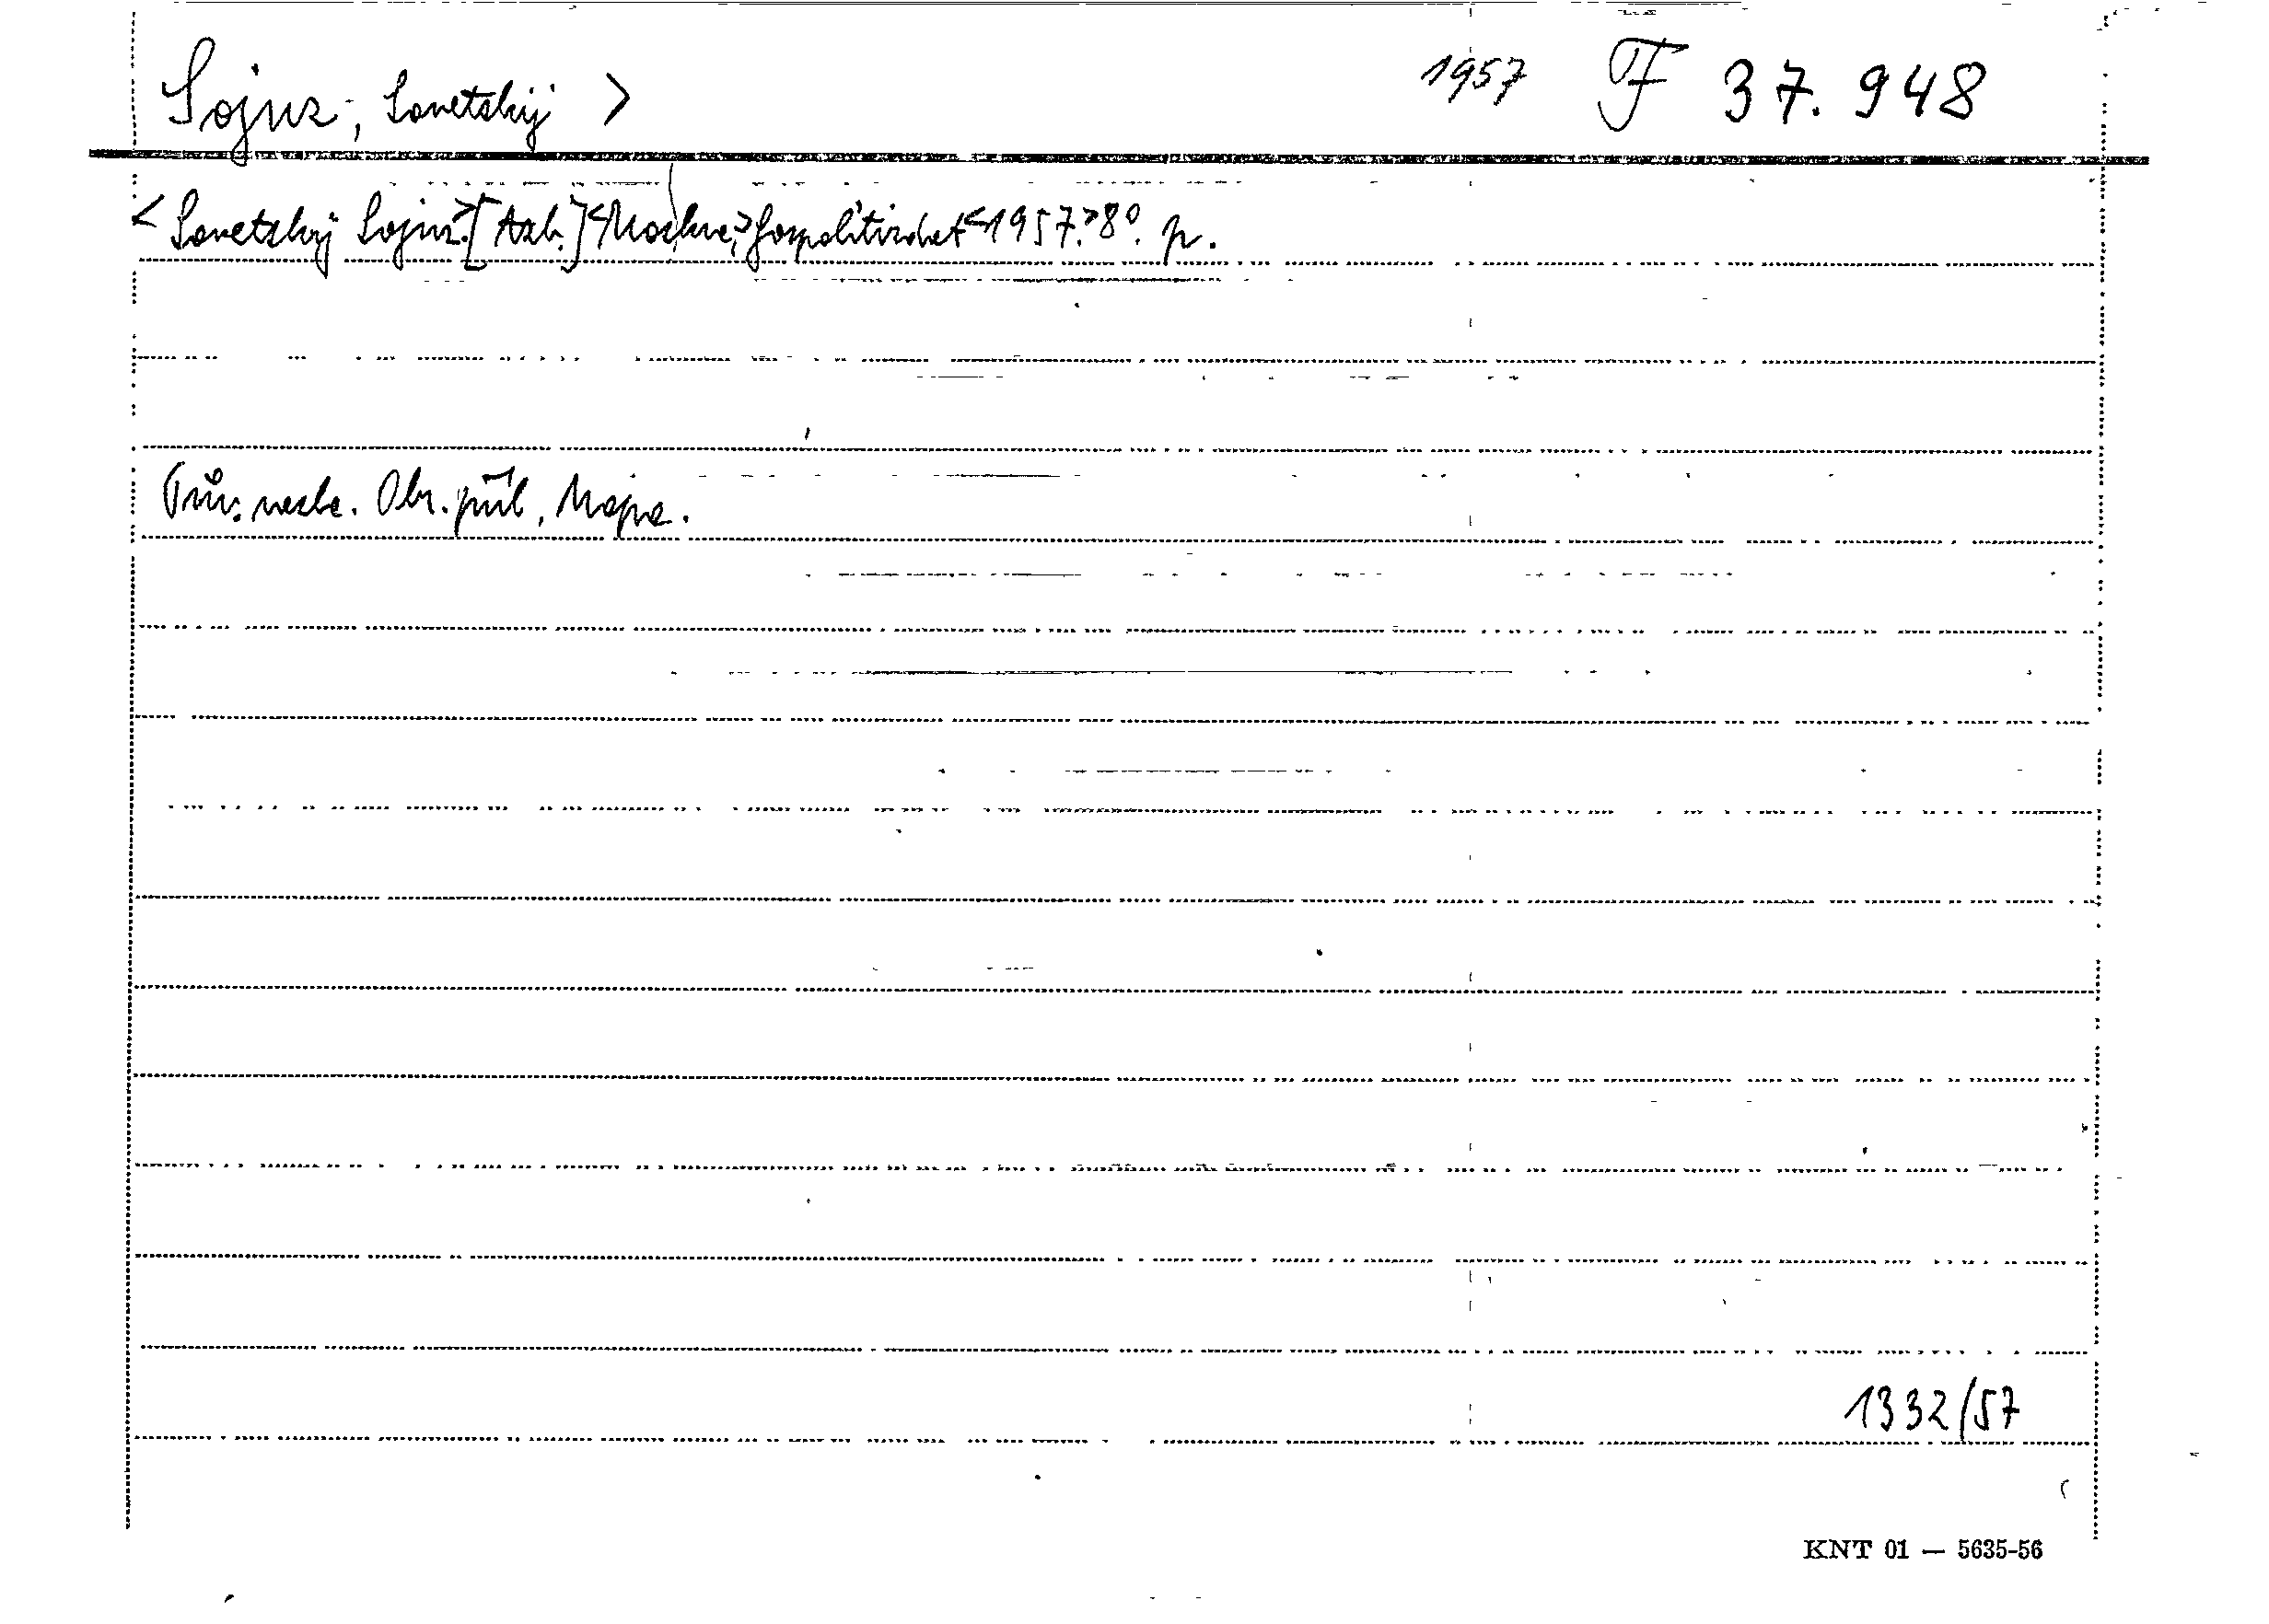 Sojuz, Sovetskij > 1957 F 37.948
< Sovetskij Sojuz.> [Azb.] <Moskva,> Gospolitizdat <1957.> 8°. p.
Prův. neste. Obr. příl, Mapa.
1332/57
KNT 01 — 5635-56